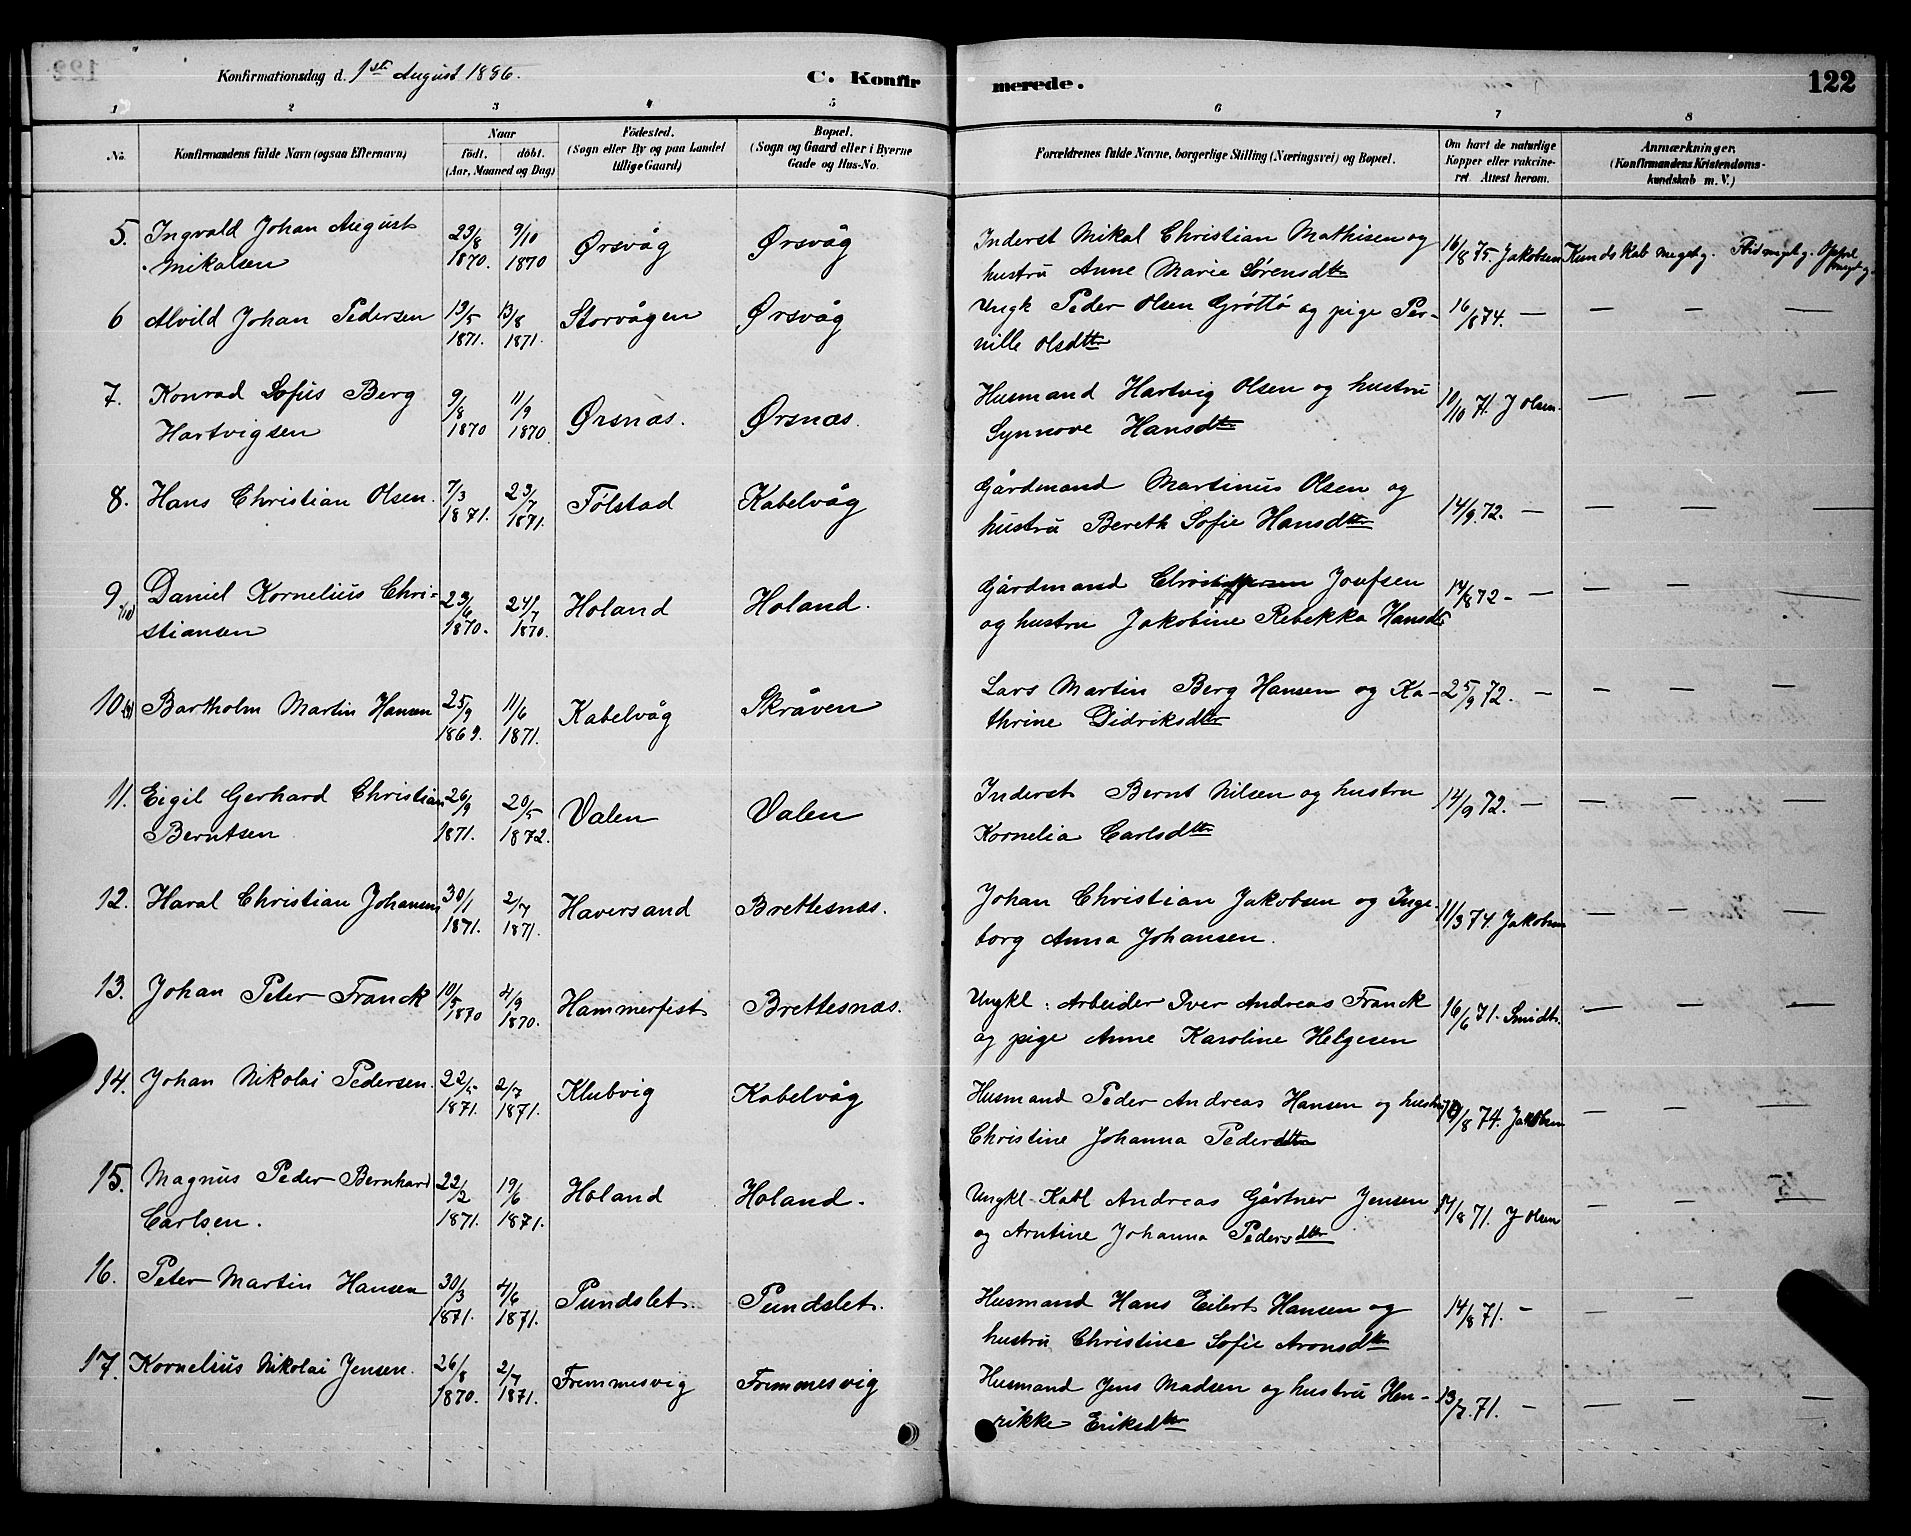 122
Konfirmationsdag d. 1ste August 1886.
C. Konfir
merede.
122
1 2 3 4 5 6 7 8
No.
Konfirmandens fulde Navn (ogsaa Efternavn)
Naar
födt. döbt.
(Aar, Maaned og Dag)
Födested.
(Sogn eller By og paa Landet
tillige Gaard)
Bopæl.
(Sogn og Gaard eller i Byerne
Gade og Hus-No.
Forældrenes fulde Navne, borgerlige Stilling (Næringsvei) og Bopæl.
Om havt de naturlige
Kopper eller vakcine-
ret. Attest herom.
Anmærkninger.
(Konfirmandens Kristendoms-
kundskab m. V.)
5. Ingvald Johan August 23/8 9/10 Ørsvåg Ørsvåg Inderst Mikal Christian Mathisen og 16/8 75. Jakobsen Kundskab meget g. Flid meget g. Oppf.
Mikalsen 1870. 1870 hustru Anne Marie Sørensdtr meget g.
6 Alvild Johan Pedersen 13/5 13/8 Storvågen Ørsvåg Ungk Peder Olsen Gróttó og pige Per- 16/8 74. — — — —
1871. 1871. nille Olsdttr
7. Konrad Sofus Berg 9/8 11/9 Ørsnæs. Ørsnæs. Husmand Hartvig Olsen og hustru 10/10 71. J Olsen. — — —
Hartvigsen 1870 1870. Synnove Hansdtr
8. Hans Christian Olsen. 7/3 23/7 Følstad Kabelvåg Gårdmand Martinus Olsen og 14/9 72. — — — —
1871. 1871. hustru Bereth Sofie Hansdttr
9 Daniel Kornelius Chri= 23/6 24/7 Holand Holand. Gårdmand Christoffersen Josefsen 14/8 72 - — — — —
stiansen 1870. 1870. og hustru Jakobine Rebekka Hansdtr
10 Bartholm Martin Hansen 25/9 11/6 Kabelvåg Skråven Lars Martin Berg Hansen og Ka- 25/9 72. — — — —
1869. 1871. thrine Didriksdttr
11. Eigil Gerhard Christian 26/9 20/5 Valen Valen Inderst Bernt Nilsen og hustru 14/9 72. — — — —
Berntsen 1871. 1872. Kornelia Carlsdttr
12. Haral Christian Johansen 30/1 2/7 Haversand Brettesnæs. Johan Christian Jakobsen og Inge- 11/3 74. Jakobsen — — —
1871. 1871. borg Anna Johansen.
13. Johan Peter Franck 10/5 4/9 Hammerfest Brettesnæs. Ungkl: Arbeider Iver Andreas Franck 16/6 71. Smidt. — — —
1870 1870. og pige Anne Karoline Helgesen
14. Johan Nikolai Pedersen. 22/5 2/7 Klubvig Kabelvåg Husmand Peder Andreas Hansen og hustru /8 74. Jakobsen — — —
1871. 1871. Christine Johanna Pederdttr
15. Magnus Peder Bernhard 22/2 19/6 Holand Holand. Ungkl. Andreas Gårtner Jensen 14/8 71. J Olsen — — —
Carlsen. 1871. 1871. og Arntine Johanna Pedersdttr
16. Peter Martin Hansen 30/3 4/6 Pundslet. Pundslet. Husmand Hans Eilert Hansen og 14/8 71. — — —
1871. 1871. hustru Christine Sofie Aronsdtr
17. Kornelius Nikolai Jensen. 26/8 2/7 Fremmesvig Fremmesvig Husmand Jens Madsen og hustru Hen- 13/7. 71. — — — —
1870. 1871. rikke Eriksdtr